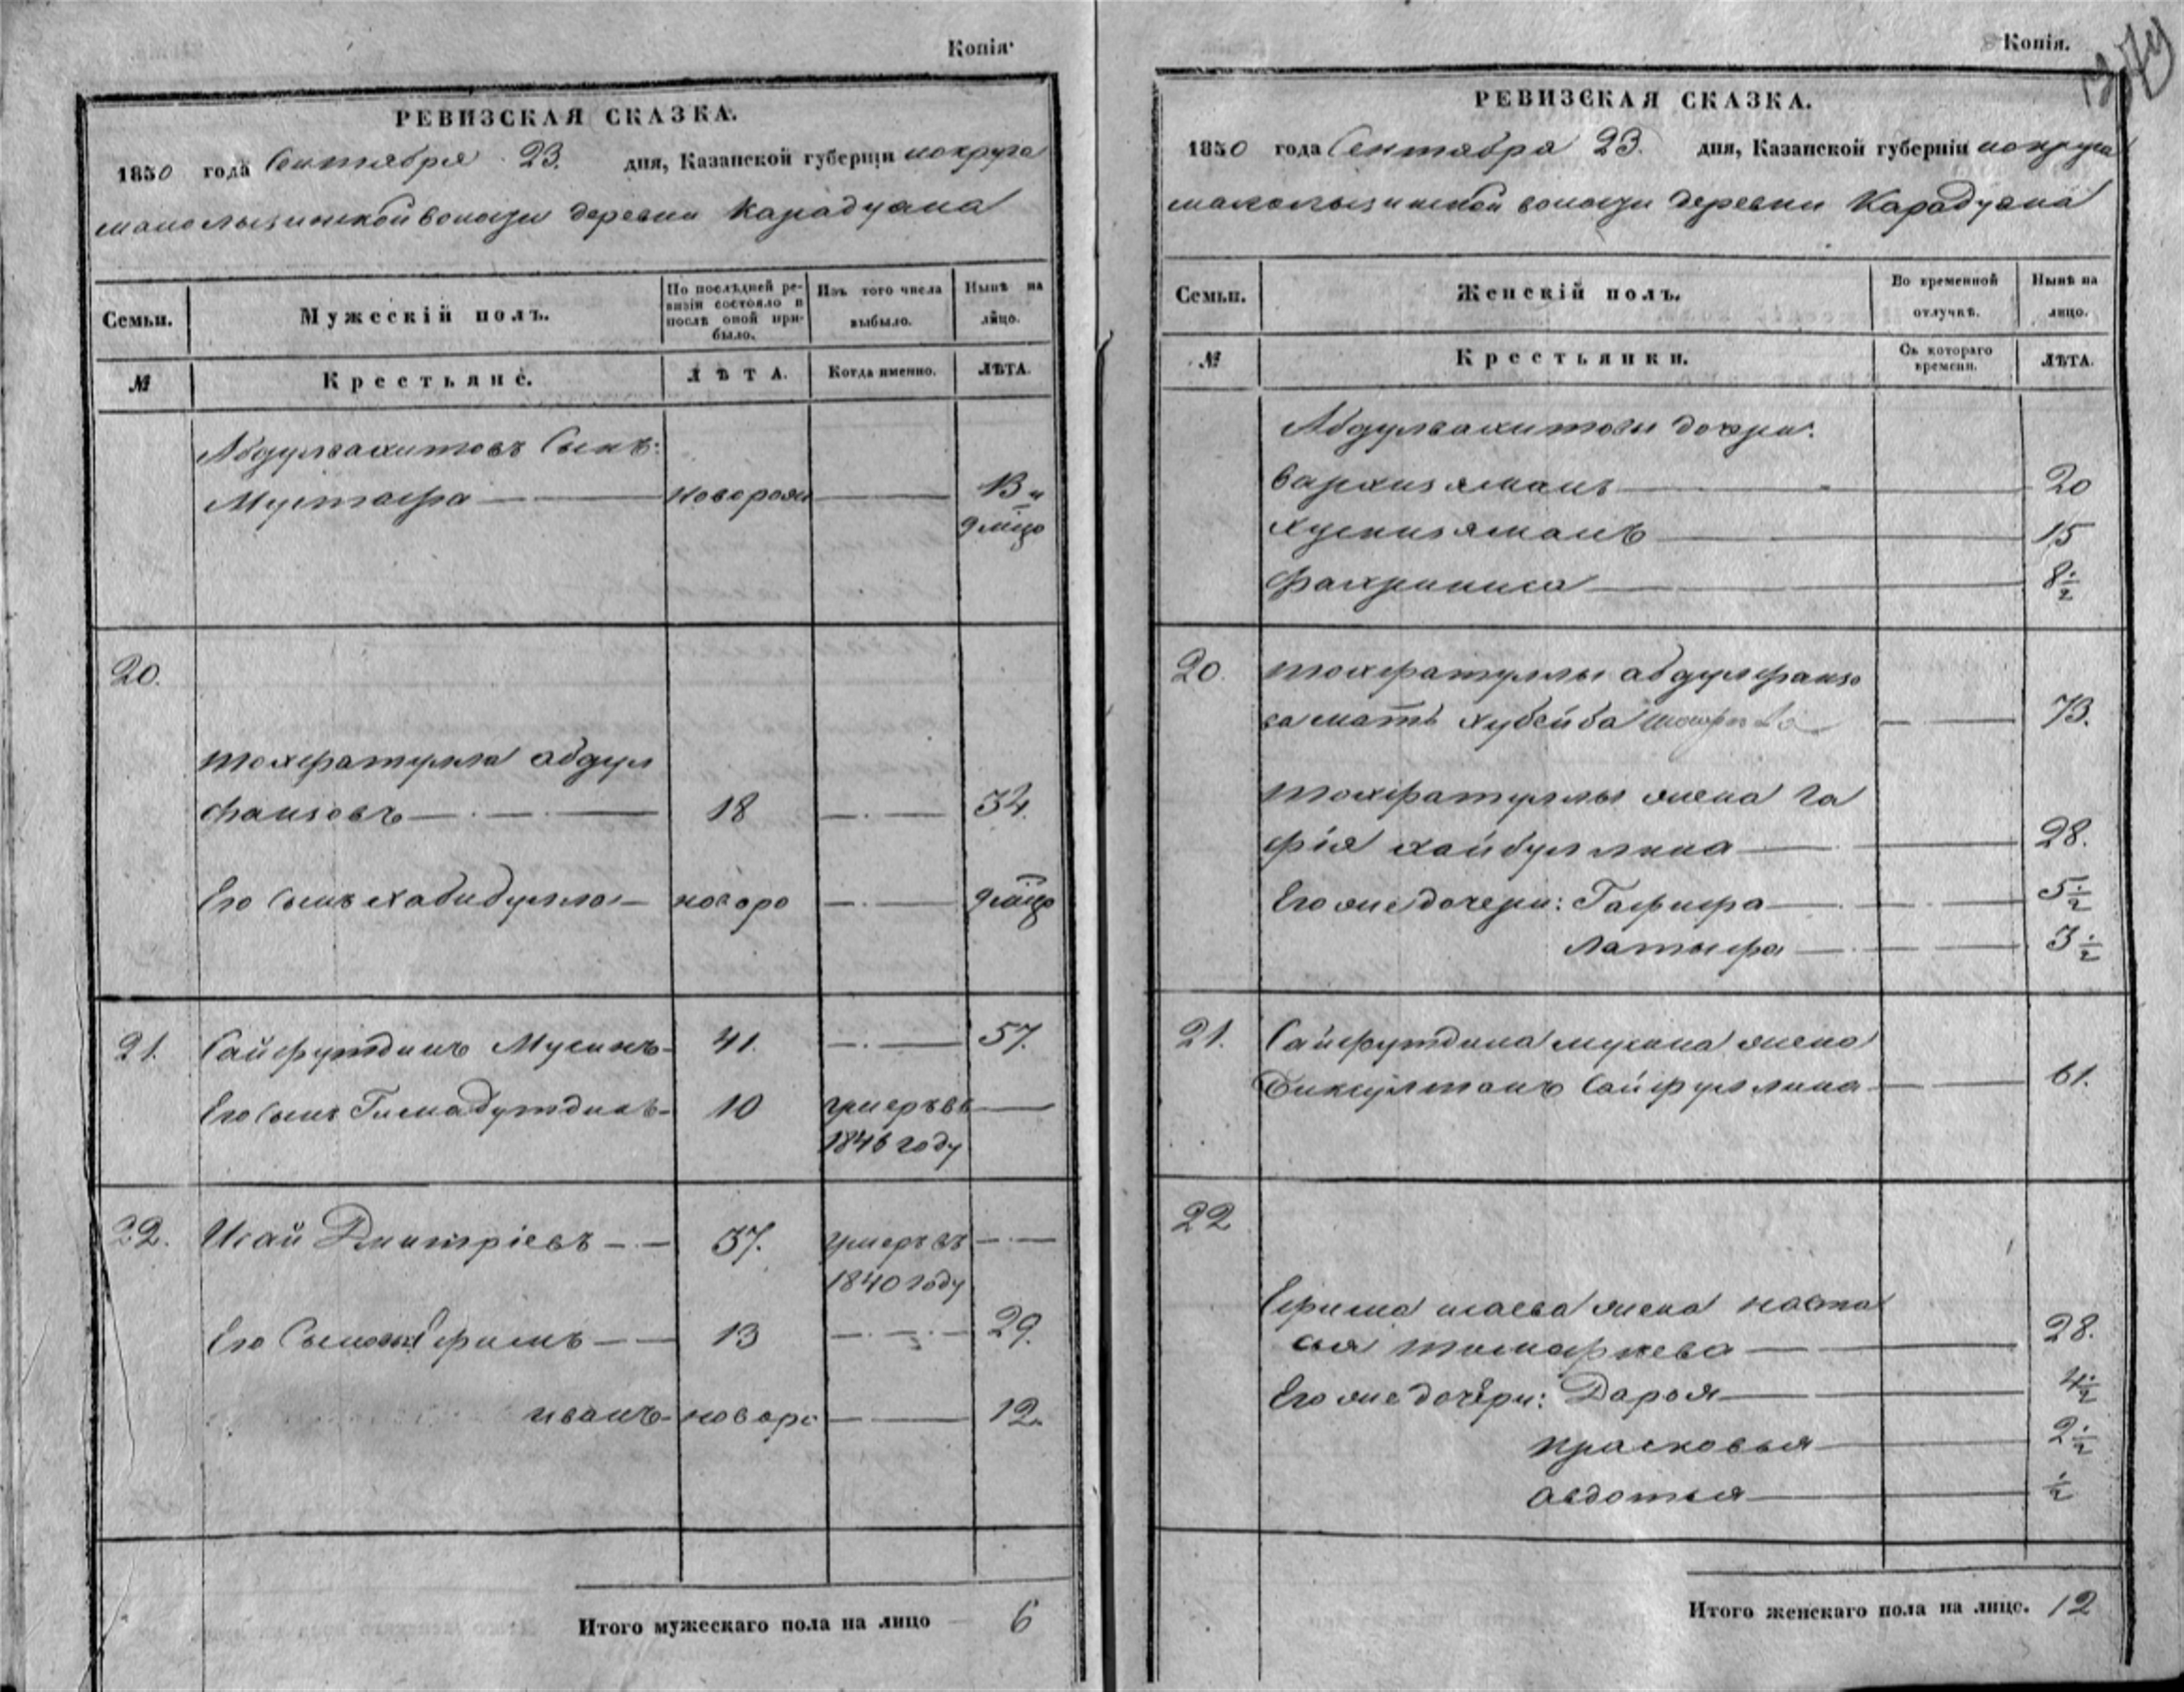 Копія.
РЕВИЗСКАЯ СКАЗКА.
1850 года Сентября 23. дня, Казанской губерніи
волости деревни Карадуана
Семьи.
Мужескій полъ.
По послѣдней ре-
визіи состояло и
послѣ оной при-
было.
Изъ того числа
выбыло.
Нынѣ на
лицо.
№
Крестьяне.
ЛѢТА.
Когда именно.
ЛѢТА.
Абдулвахитовъ Сынъ:
Мустафа новорож 13 и
20.
тохфатулла абдул
фаизовъ 18 34.
Его Сынъ хабибулла новоро
21. Сайфутдинъ Мусинъ 41. 57.
Его сынъ Гимадутдинъ 10 умеръ въ
1846 году
22. Исай Дмитріевъ 57. умеръ въ
1840 году
Его Сыновья Ефимъ 13 29.
иванъ новоро 12.
Итого мужескаго пола на лицо 6
Копія.
РЕВИЗСКАЯ СКАЗКА.
1850 года Сентября 23. дня, Казанской губерніи
волости деревни Карадуана
Семьи.
Женскій полъ.
Во временной
отлучкѣ.
Нынѣ на
лицо.
№
Крестьянки.
Съ котораго
времени.
ЛѢТА.
Абдулвахитовы дочери:
20
хуснизяманъ 15
фахриниса 8 1/2
20. тохфатуллы абдулфаизо
ва мать хубейба 73.
тохфатуллы жена га
фія хайбуллина 28.
Его же дочери: Гафифа 5 1/2
латыфа 3 1/2
21. Сайфутдина мусина жена
Бикултанъ Сайфуллина 61.
22
Ефима исаева жена наста
сья тимофіева 28.
Его же дочери: Дарья 4 1/2
прасковья 2 1/2
авдотья 1/2
Итого женскаго пола на лицо. 12